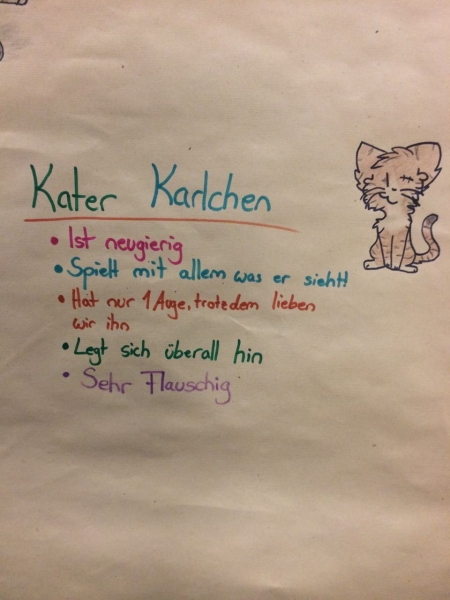 Kater Karlchen
• Ist neugierig
• Spielt mit allem was er sieht!
• Hat nur 1 Auge, trotzdem lieben
wir ihn
• Legt sich überall hin
• Sehr Flauschig